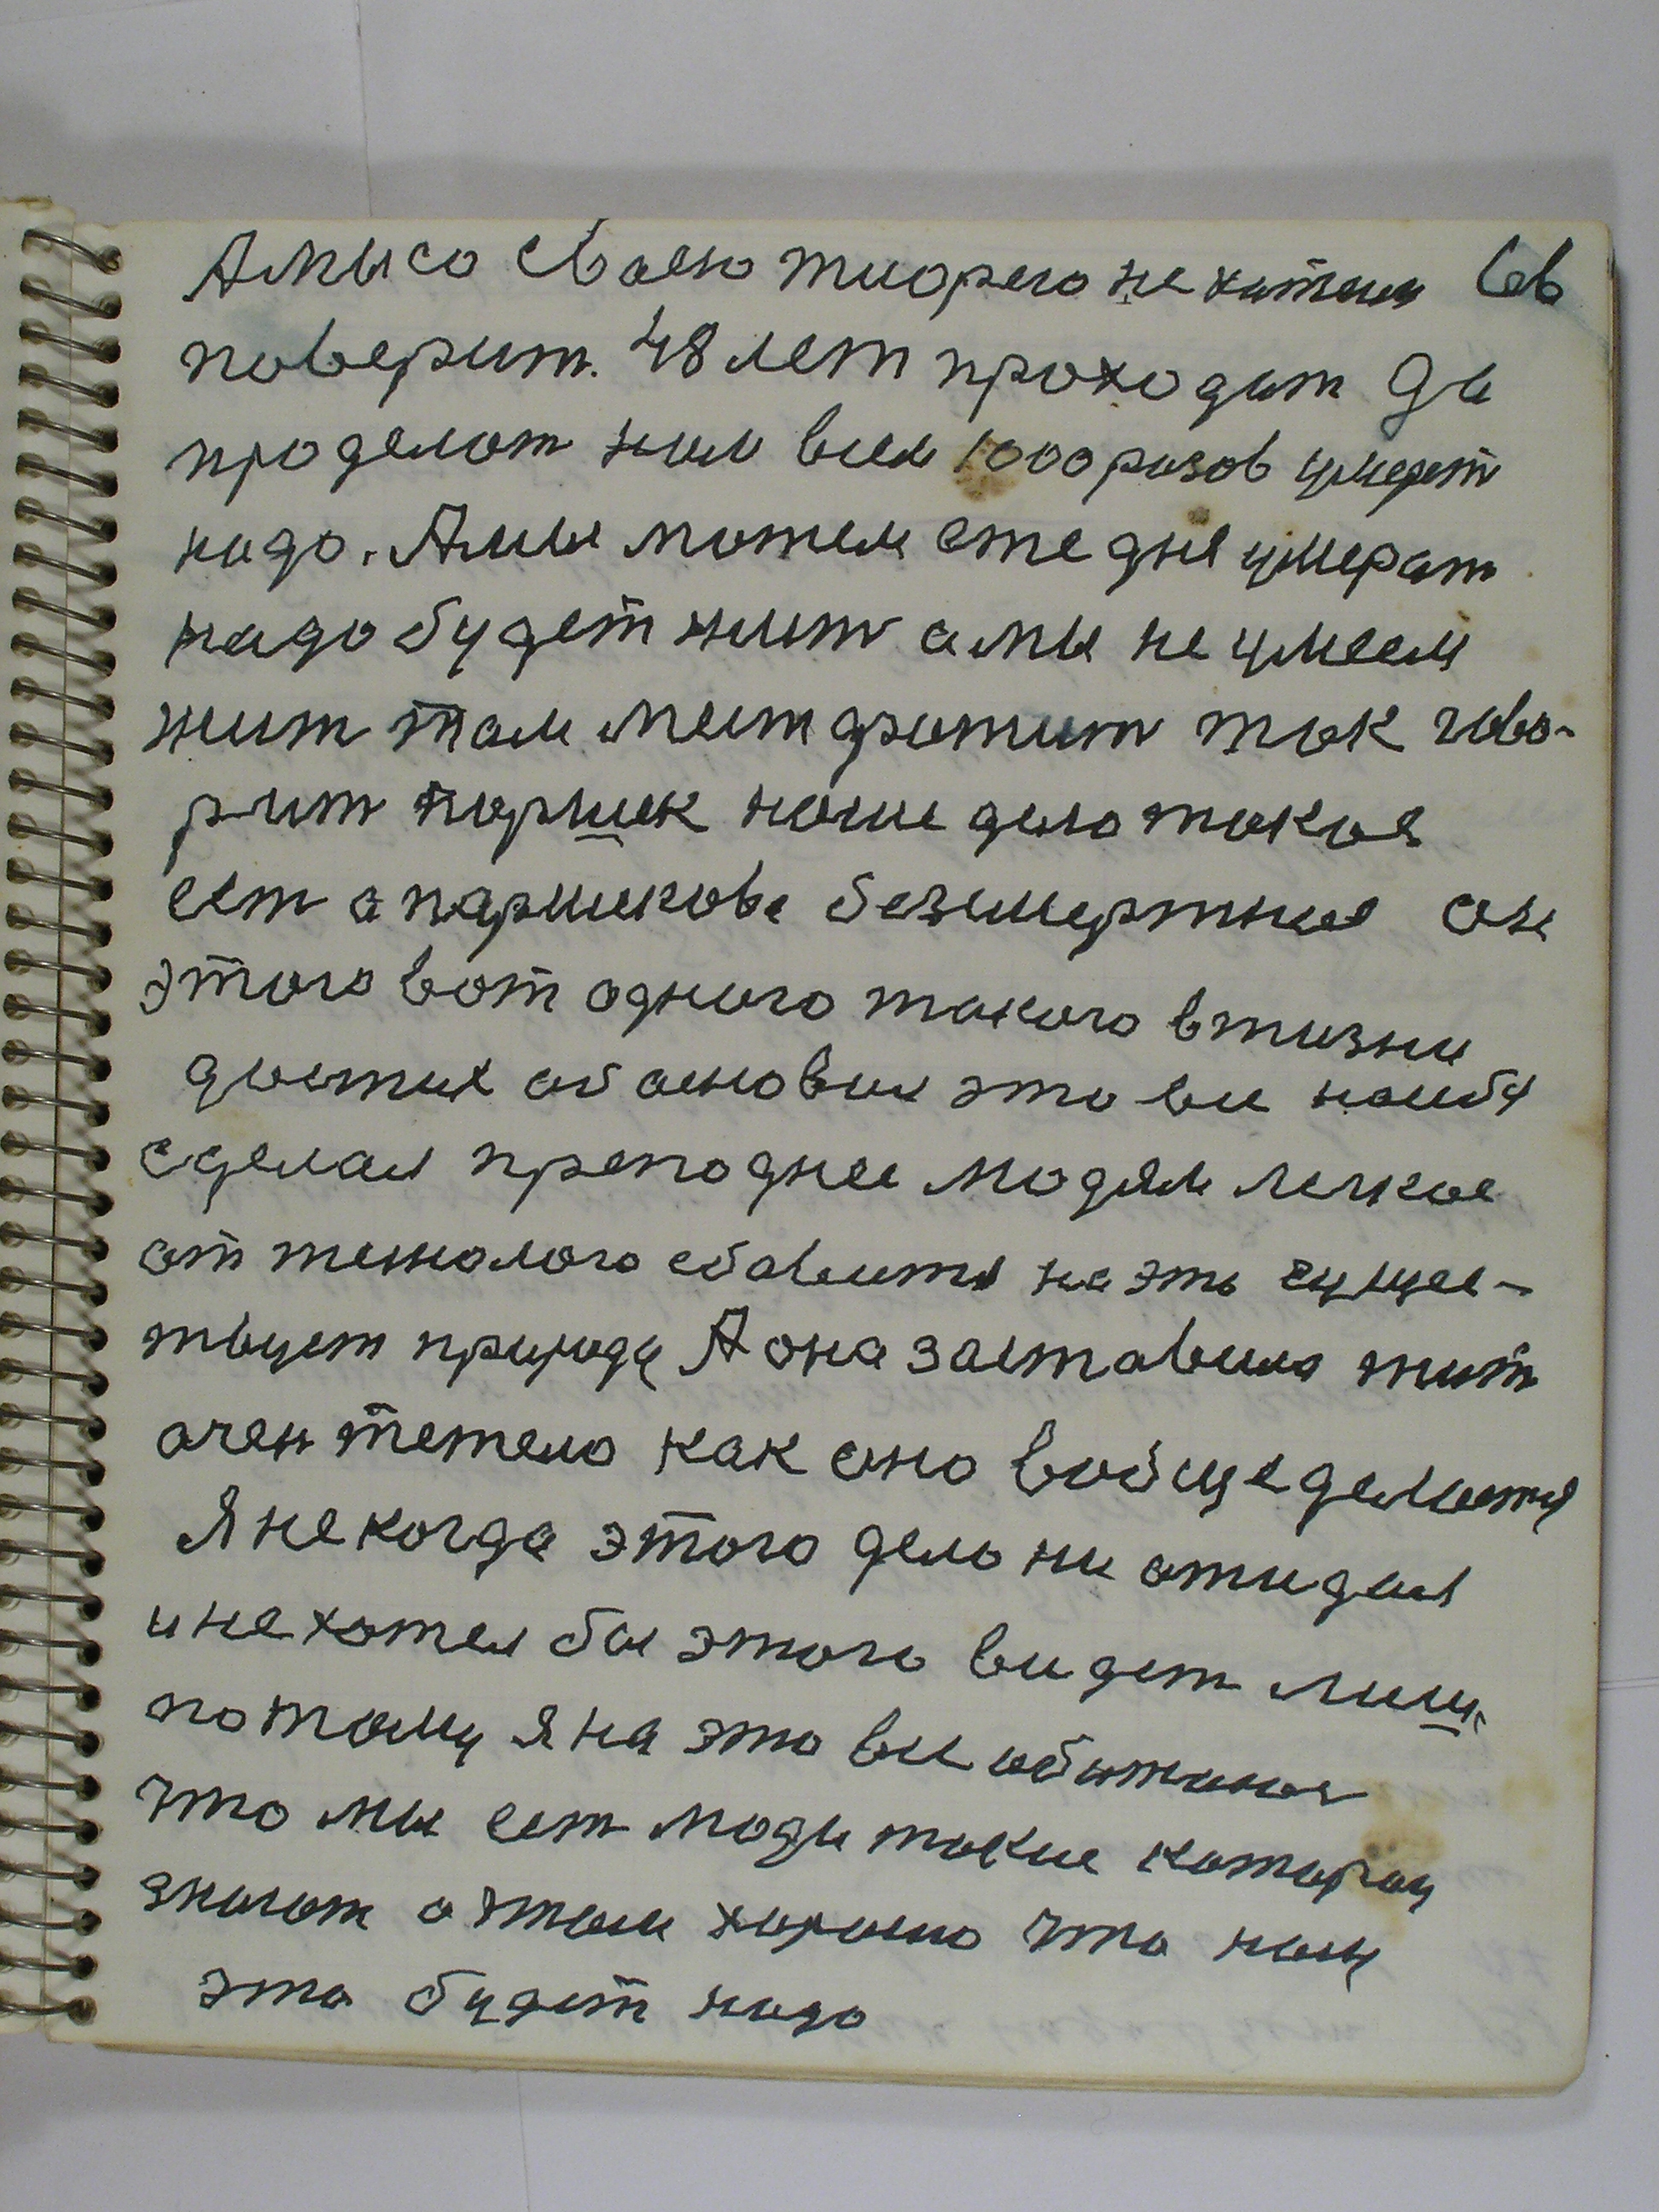 Амы со сваею тиорего не хатим 66
поверит. 48 лет проходит Да
проделат нам всем 1000 разов умерет
надо. Амы можем сте дня умерат
надо будет жит а мы не умеем
жит там мист дражит так гово-
рит паршек наше дело такое
ест а паршикове безсмертное он
этого вот одного такого в жизни
достих обосновал это все на себя
сделал преподнес людям легкое
от тежолого сбавится на эть сущес-
твует природу А она заставила жит
очен тежело как оно вобще делается
Я не когда этого дело ни ожидал
и не хотел бы этого видет лиш
потому я на это все обижаюс
что мы ест люди такие которои
знают о этом харошо что наму
это будет надо